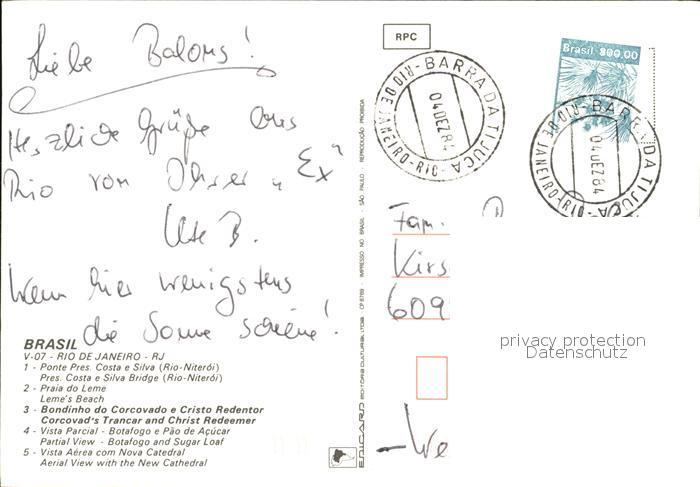 Liebe Baloms!
Herzliche Grüße aus
Rio von Unserer „Ex"
Ute B.
Wenn hier wenigstens
die Sonne schiene!
BRASIL
V-07 - RIO DE JANEIRO - RJ
1 - Ponte Pres. Costa e Silva (Rio-Niterói)
Pres. Costa e Silva Bridge (Rio-Niterói)
2 - Praia do Leme
Leme's Beach
3 - Bondinho do Corcovado e Cristo Redentor
Corcovad's Trancar and Christ Redeemer
4 - Vista Parcial - Botafogo e Pão de Açúcar
Partial View - Botafogo and Sugar Loaf
5 - Vista Aérea com Nova Catedral
Aerial View with the New Cathedral
EDICARD EDITORA CULTURAL LTDA. CP 8769 - IMPRESSO NO BRASIL - SÃO PAULO - REPRODUÇÃO PROIBIDA
RPC
BARRA DA TIJUCA
RIO DE JANEIRO-RIO-
04 DEZ 84
Brasil 800,00
BARRA DA TIJUCA
RIO DE JANEIRO-RIO-
04 DEZ 84
Fam.
Kirs
609
-We
privacy protection
Datenschutz